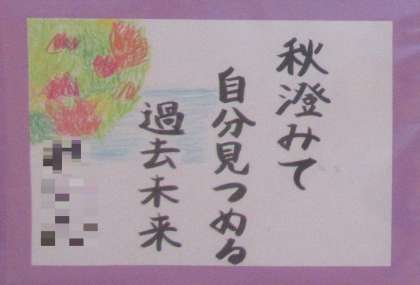 秋澄みて
自分見つめる
過去未来